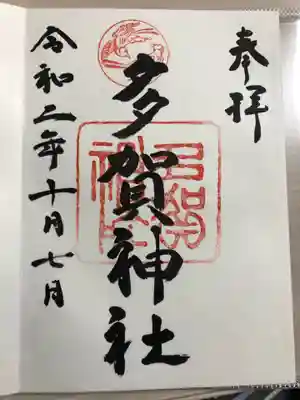 奉拝
多賀神社
多賀神社
令和二年十月七日